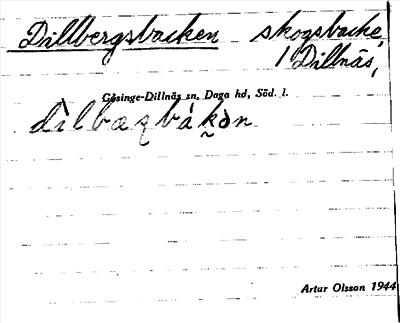 Dillbergsbacken skogsbacke
i Dillnäs,
Gåsinge-Dillnäs sn, Daga hd, Söd. l.
Artur Olsson 1944